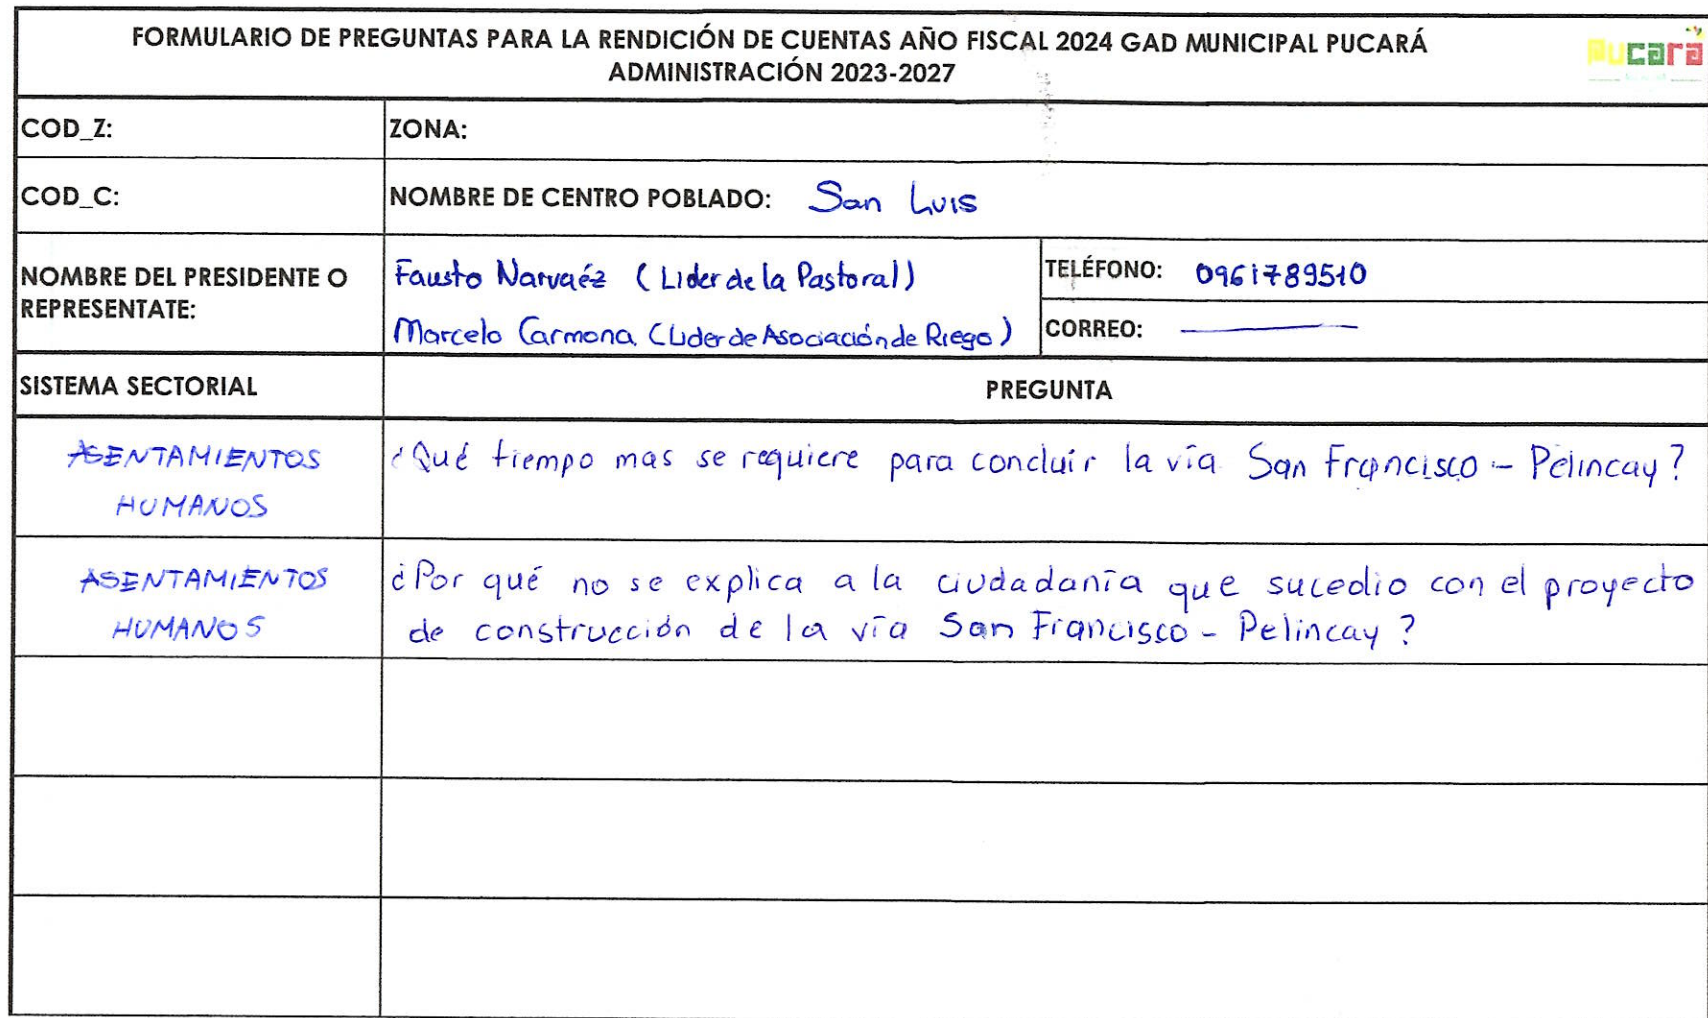 FORMULARIO DE PREGUNTAS PARA LA RENDICIÓN DE CUENTAS AÑO FISCAL 2024 GAD MUNICIPAL PUCARÁ
ADMINISTRACIÓN 2023-2027
Pucará
COD_Z:
ZONA:
COD_C:
NOMBRE DE CENTRO POBLADO: San Luis
NOMBRE DEL PRESIDENTE O
REPRESENTATE:
Fausto Narvaéz (Lider de la Pastoral)
Marcelo Carmona (Lider de Asociación de Riego)
TELÉFONO: 0961789510
CORREO:
SISTEMA SECTORIAL
PREGUNTA
ASENTAMIENTOS
HUMANOS
¿Qué tiempo mas se requiere para concluir la vía San Francisco - Pelincay?
ASENTAMIENTOS
HUMANOS
¿Por qué no se explica a la ciudadanía que sucedio con el proyecto
de construcción de la vía San Francisco - Pelincay?